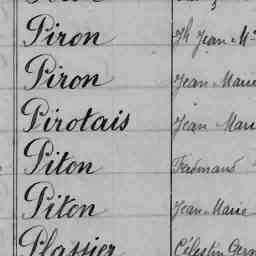 Piron Jh Jean M
Piron Jean Marie
Pirotais Jean Mari
Piton Ferdinand
Piton Jean-Marie
Plassier Célestin